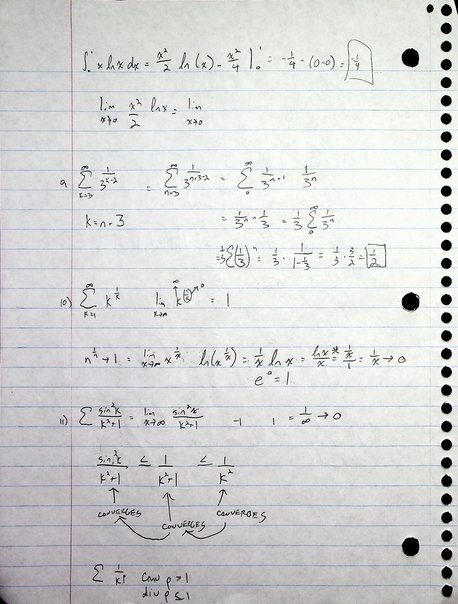 ∫₀¹ x ln x dx = x²/2 ln(x) - x²/4 |₀¹ = -1/4 - (0-0) = -1/4
lim x→0 x²/2 ln x = lim x→0
9 ∞ Σ k=3 1/3^(k-2) = ∞ Σ n+3 1/3^(n+3-2) = ∞ Σ 0 1/3^(n+1) 1/3^n
k = n+3 = 1/3^n · 1/3 = 1/3 ∞ Σ 0 1/3^n
= 1/3 Σ (1/3)^n = 1/3 · 1/(1-1/3) = 1/3 · 3/2 = 1/2
10) ∞ Σ k=1 k^(1/k) lim k→∞ k^(1/k) = 1
∞ → 0
n^(1/n) → 1 = lim x→∞ x^(1/x) ln(x^(1/x)) = 1/x ln x = ln x/x = (1/x)/1 = 1/x → 0
e⁰ = 1
11) Σ sin²k/(k²+1) = lim x→∞ sin²x/(k²+1) -1 1 = 1/∞ → 0
sin²k/(k²+1) ≤ 1/(k²+1) ≤ 1/k²
CONVERGES CONVERGES CONVERGES
Σ 1/k^p conv p > 1
div p ≤ 1